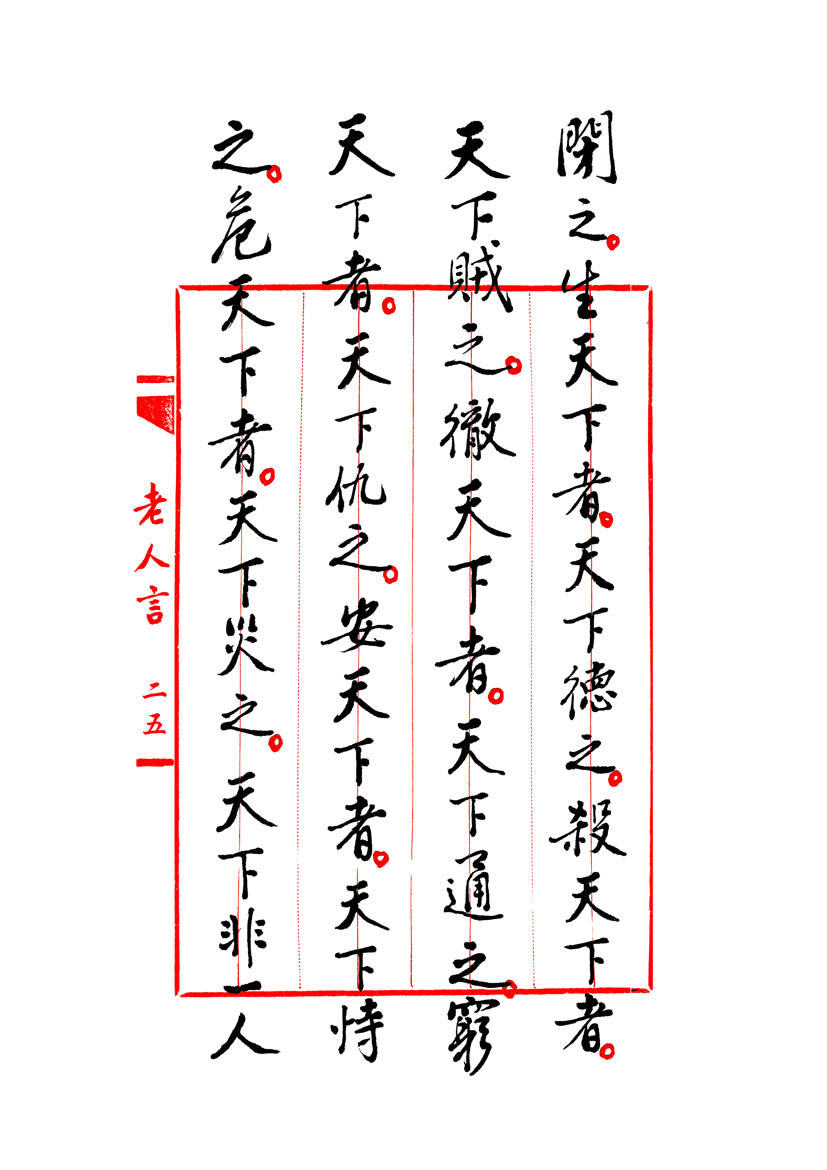 閉之。生天下者。天下德之。殺天下者。
天下賊之。徹天下者。天下通之。窮
天下者。天下仇之。安天下者。天下恃
之。危天下者。天下災之。天下非一人
老人言 二五